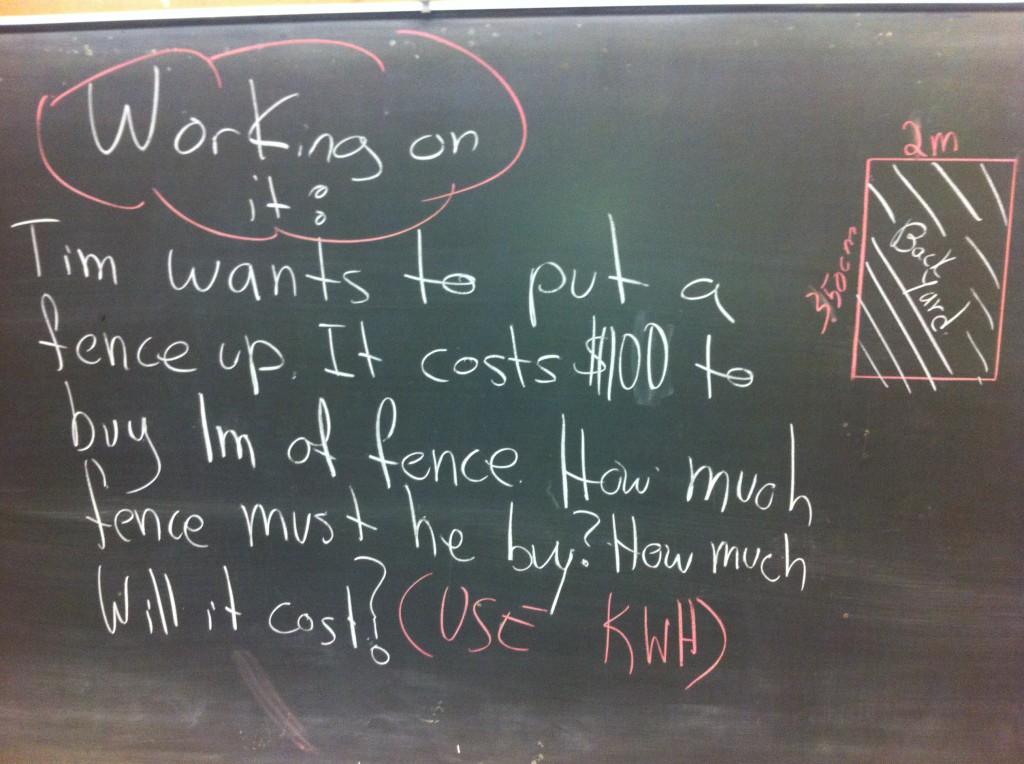 Working on
it:
Tim wants to put a
fence up. It costs $100 to
buy 1m of fence. How much
fence must he buy? How much
Will it cost? (USE KWH)
2m
350cm
Back
yard